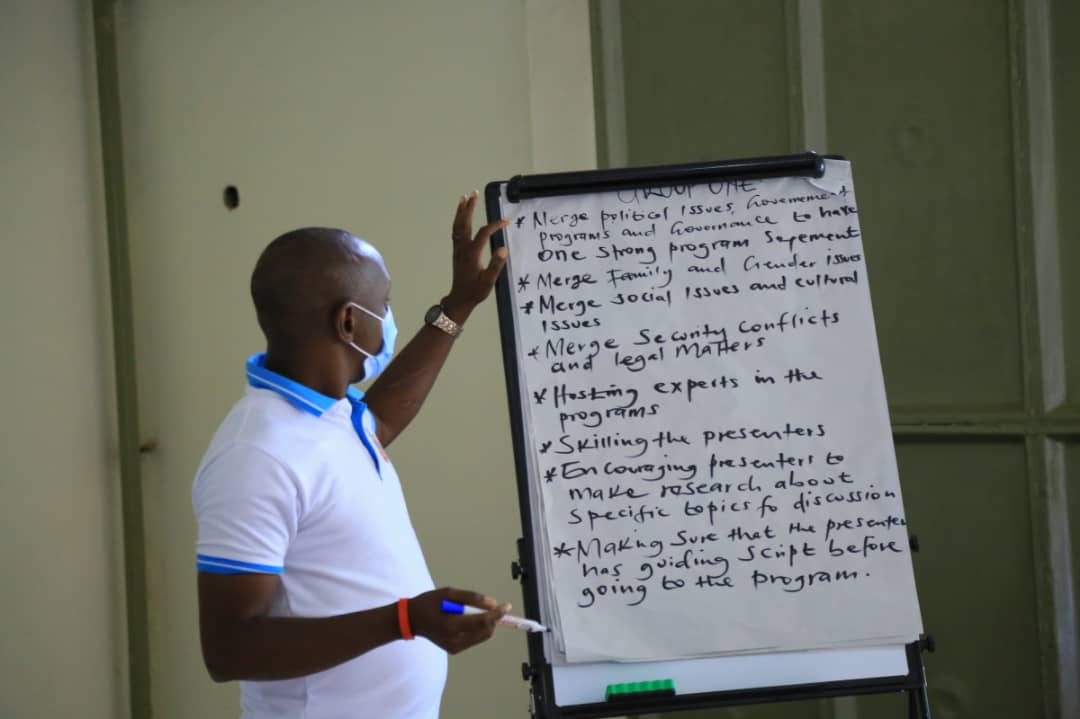 GROUP ONE
* Merge political Issues, Governement
programs and Governance to have
one strong program Segement
* Merge Family and Gender issues
* Merge social Issues and cultural
Issues
* Merge Security Conflicts
and legal Matters
* Hosting experts in the
programs
* Skilling the presenters
* Encouraging presenters to
make research about
specific topics fo discussion
* Making Sure that the presenter
has guiding script before
going to the program.